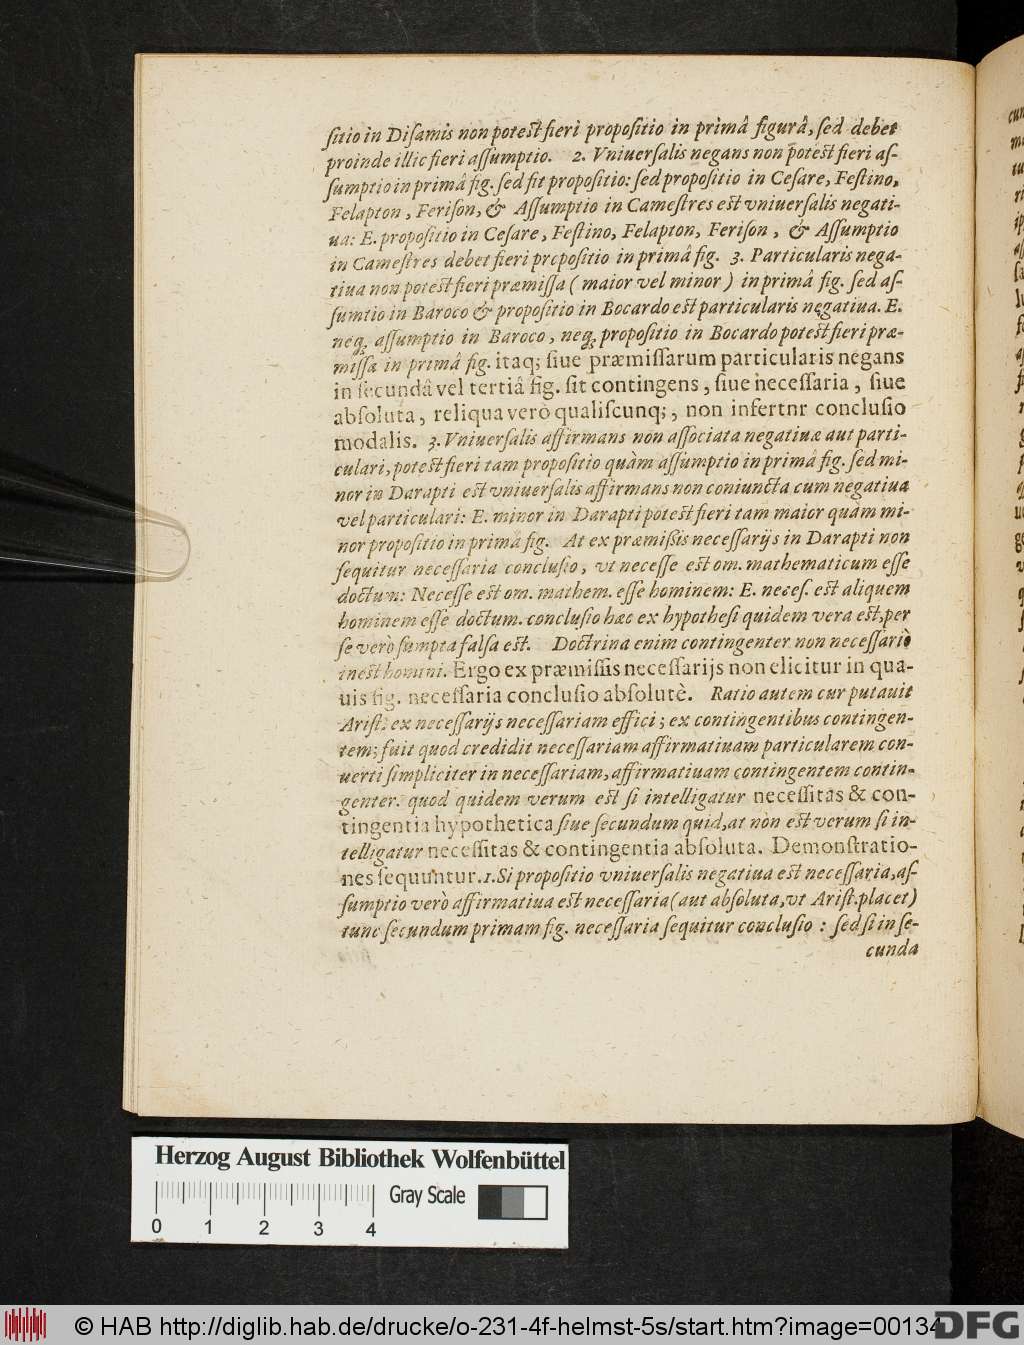 sitio in Disamis non potest fieri propositio in primâ figurâ, sed debet
proinde illic fieri assumptio. 2. Vniuersalis negans non potest fieri as-
sumptio in primâ fig. sed fit propositio: sed propositio in Cesare, Festino,
Felapton, Ferison, & Assumptio in Camestres est vniuersalis negati-
ua: E. propositio in Cesare, Festino, Felapton, Ferison, & Assumptio
in Camestres debet fieri propositio in primâ fig. 3. Particularis nega-
tiua non potest fieri præmissa (maior vel minor) in primâ fig. sed as-
sumtio in Baroco & propositio in Bocardo est particularis negatiua. E.
neq; assumptio in Baroco, neq; propositio in Bocardo potest fieri præ-
missa in primâ fig. itaq; siue præmissarum particularis negans
in secundâ vel tertiâ fig. sit contingens, siue necessaria, siue
absoluta, reliqua verò qualiscunq;, non infertnr conclusio
modalis. 3. Vniuersalis affirmans non associata negatiuæ aut parti-
culari, potest fieri tam propositio quàm assumptio in primâ fig. sed mi-
nor in Darapti est vniuersalis affirmans non coniuncta cum negatiua
vel particulari: E. minor in Darapti potest fieri tam maior quàm mi-
nor propositio in primâ fig. At ex præmissis necessarijs in Darapti non
sequitur necessaria conclusio, vt necesse est om. mathematicum esse
doctum: Necesse est om. mathem. esse hominem: E. neces. est aliquem
hominem esse doctum. conclusio hæc ex hypothesi quidem vera est, per
se verò sumpta falsa est. Doctrina enim contingenter non necessariò
inest homini. Ergo ex præmissis necessarijs non elicitur in qua-
uis fig. necessaria conclusio absolutè. Ratio autem cur putauit
Arist. ex necessarijs necessariam effici; ex contingentibus contingen-
tem; fuit quod credidit necessariam affirmatiuam particularem con-
uerti simpliciter in necessariam, affirmatiuam contingentem contin-
genter. quod quidem verum est si intelligatur necessitas & con-
tingentia hypothetica siue secundum quid, at non est verum si in-
telligatur necessitas & contingentia absoluta. Demonstratio-
nes sequuntur. 1. Si propositio vniuersalis negatiua est necessaria, as-
sumptio verò affirmatiua est necessaria (aut absoluta, vt Arist. placet)
tunc secundum primam fig. necessaria sequitur conclusio : sed si in se-
cunda
Herzog August Bibliothek Wolfenbüttel
Gray Scale
0 1 2 3 4
© HAB http://diglib.hab.de/drucke/o-231-4f-helmst-5s/start.htm?image=00134
DFG